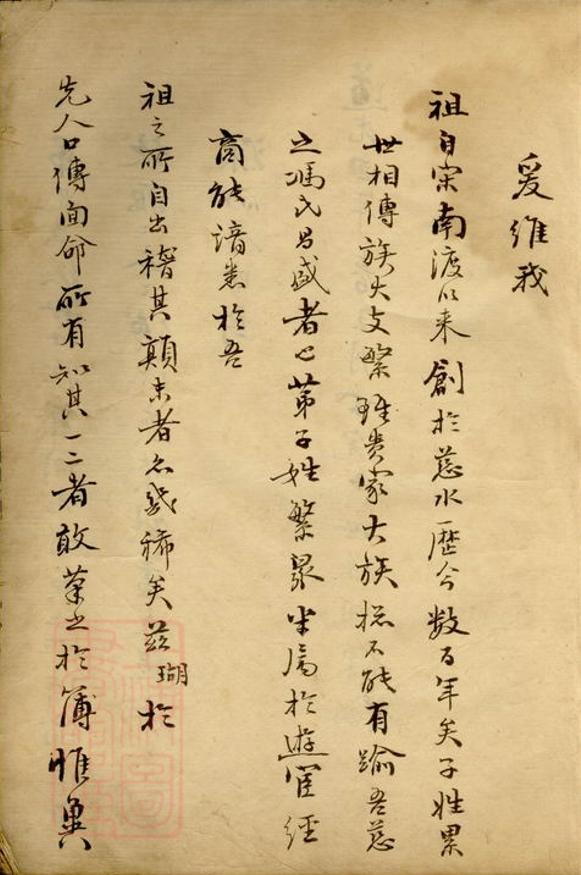 爰維我
祖自宋南渡以来創於慈水歷今数百年矣子姓累
世相傳族大支繁雖貴家大族概不能有踰吾慈
之馮氏昌盛者也第子姓繁衆半屬於遊宦經
商能諳悉於吾
祖之所自出稽其顛末者亦幾稀矣茲瑚於
先人口傳面命所有知其一二者敢筆之於簿惟冀